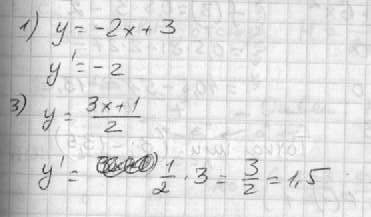 1) y = -2x + 3
y' = -2
3) y = (3x+1)/2
y' = 1/2 · 3 = 3/2 = 1,5